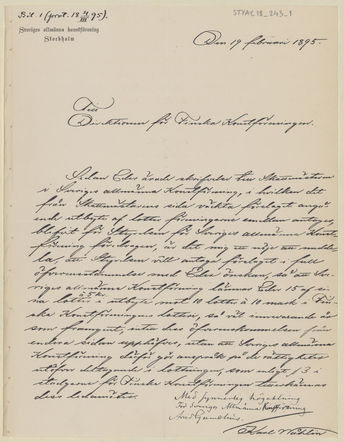 Bil. 1 (prot. 18 4/III 95).
STYAL18_243_1
Sveriges allmänna konstförening
Stockholm
Den 19 februari 1895.
Till
Direktionen för Finska Konstföreningen.
Sedan Eder ärade skrifvelse till Skattmästaren
i Sveriges allmänna Konstförening, i hvilken det
från Skattmästarens sida väckta förslaget angå-
ende utbyte af lotter föreningarne emellan antages,
blifvit för Styrelsen för Sveriges allmänna Konst-
förening föredragen, är det mig en nöje att medde-
la, att Styrelsen vill antaga förslaget i full
öfverensstämmelse med Eder önskan, så att Sve-
riges allmänna Konstförening lämnar Eder 15 af si-
na lotter à 5 kr. i utbyte mot 10 lotter à 10 mark i Fin-
ska Konstföreningens lotteri, så väl innevarande år
som framgent, intill dess öfverenskommelsen från
endera sidan upphäfves, utan att Sveriges allmänna
Konstförening därför gör anspråk på de rättigheter
utöfver deltagande i lottningen, som enligt § 3 i
stadgarne för Finska Konstföreningen tillkomma
dess ledamöter.
Med synnerlig högaktning
För Sveriges Allmänna Konstförening
Karl Wåhlin